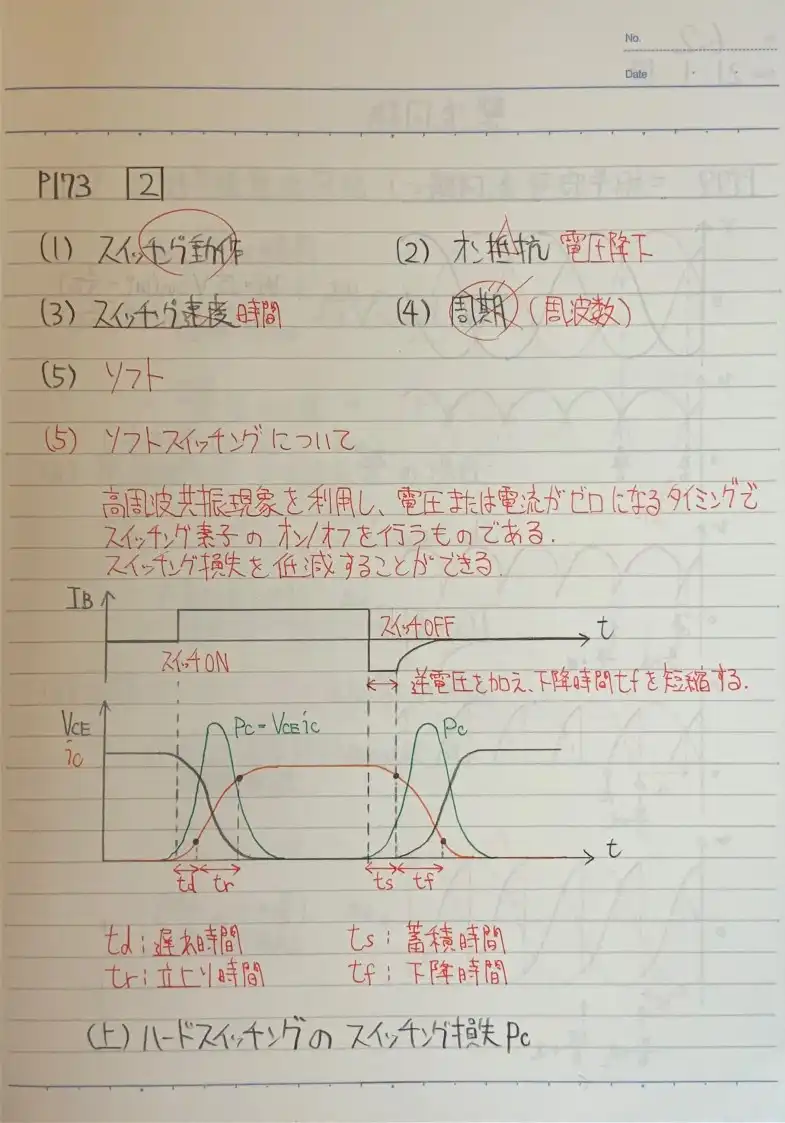 No.
Date
P173 2
(1) スイッチング動作 (2) オン抵抗 電圧降下
(3) スイッチング速度 時間 (4) 周期 (周波数)
(5) ソフト
(5) ソフトスイッチングについて
高周波共振現象を利用し、電圧または電流がゼロになるタイミングで
スイッチング素子のオン/オフを行うものである.
スイッチング損失を低減することができる.
IB スイッチOFF t
スイッチON
逆電圧を加え、下降時間tfを短縮する.
VCE Pc=VCEic Pc
ic
t
td tr ts tf
td:遅れ時間 ts:蓄積時間
tr:立上り時間 tf:下降時間
(上)ハードスイッチングのスイッチング損失Pc